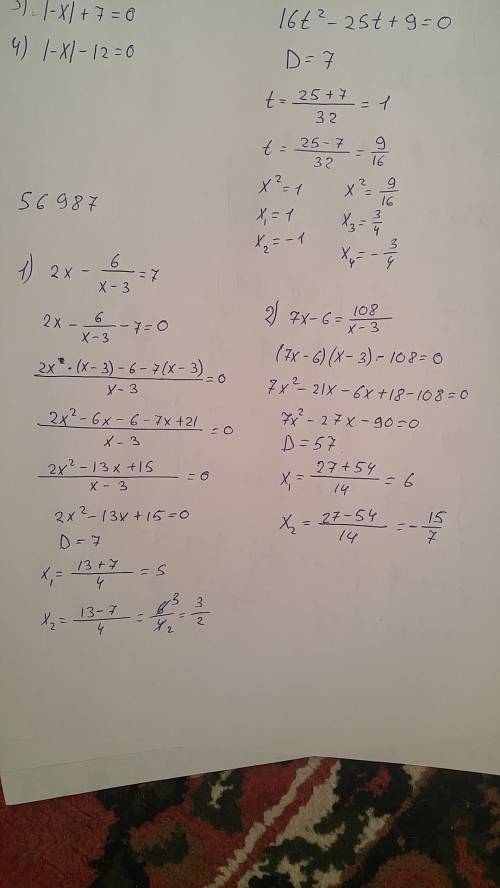 3) |-x| + 7 = 0
4) |-x| - 12 = 0
16t² - 25t + 9 = 0
D = 7
t = (25 + 7)/32 = 1
t = (25 - 7)/32 = 9/16
x² = 1
x₁ = 1
x₂ = -1
x² = 9/16
x₃ = 3/4
x₄ = -3/4
56987
1) 2x - 6/(x-3) = 7
2x - 6/(x-3) - 7 = 0
(2x · (x-3) - 6 - 7(x-3))/(x-3) = 0
(2x² - 6x - 6 - 7x + 21)/(x-3) = 0
(2x² - 13x + 15)/(x-3) = 0
2x² - 13x + 15 = 0
D = 7
x₁ = (13 + 7)/4 = 5
x₂ = (13 - 7)/4 = 6³/4₂ = 3/2
2) 7x - 6 = 108/(x-3)
(7x - 6)(x - 3) - 108 = 0
7x² - 21x - 6x + 18 - 108 = 0
7x² - 27x - 90 = 0
D = 57
x₁ = (27 + 54)/14 = 6
x₂ = (27 - 54)/14 = -15/7